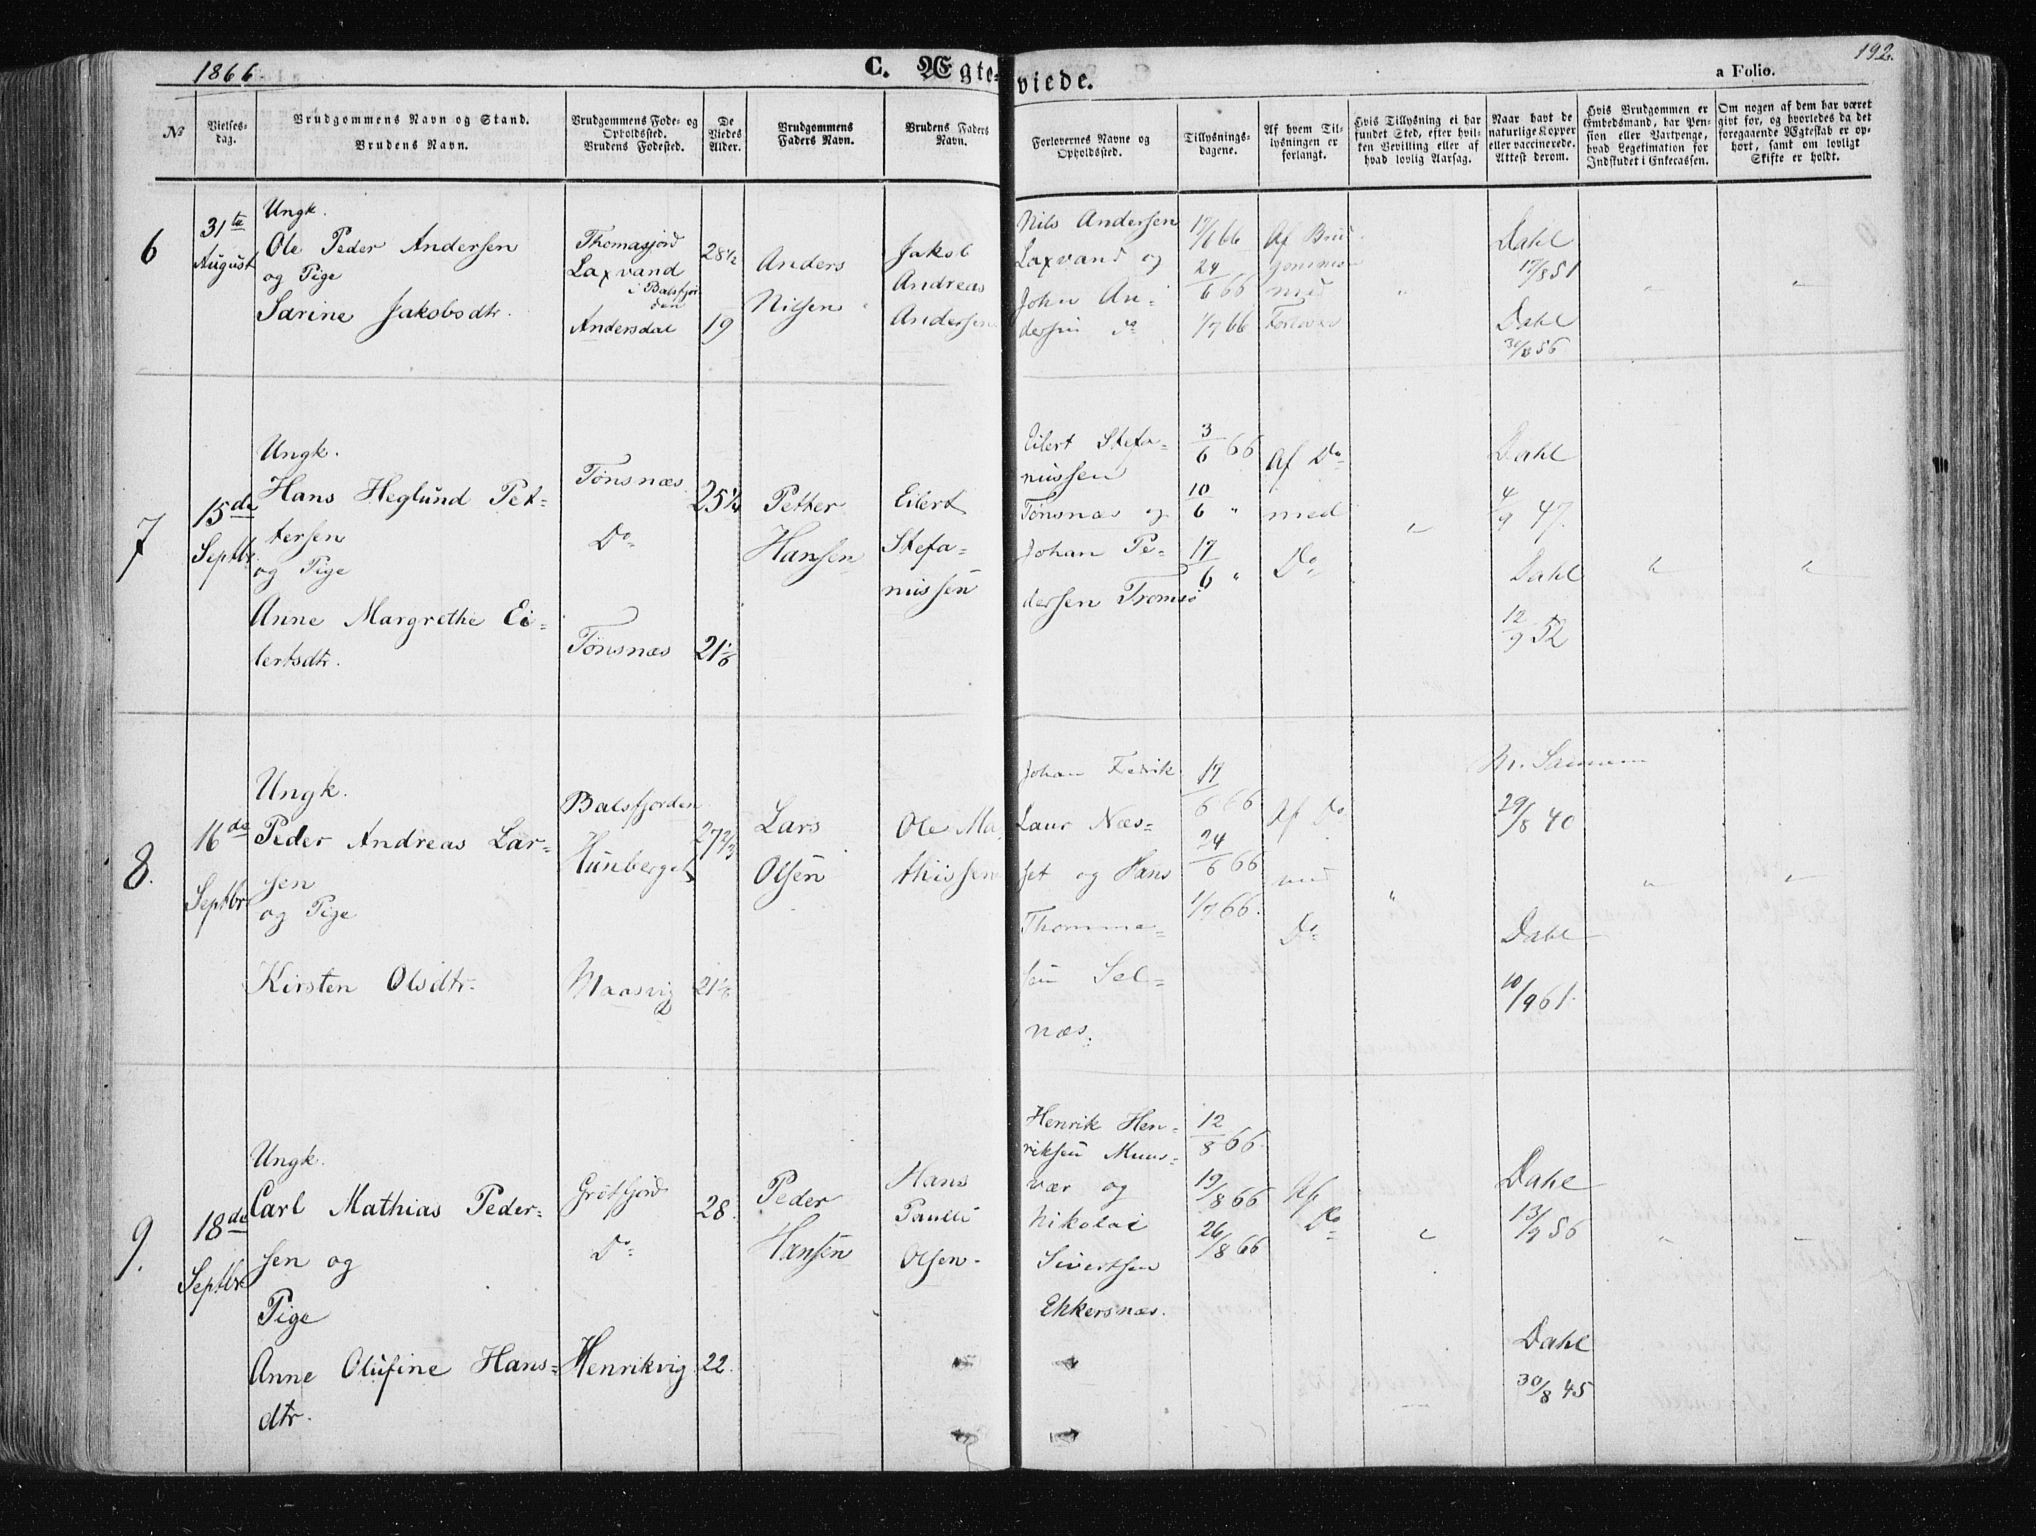 1866
C. Ægteviede.
a Folio.
192.
No
Vielsesdag.
Brudgommens Navn og Stand.
Brudens Navn.
Brudgommens Føde- og
Opholdssted.
Brudens Fødested.
De
Viedes
Alder.
Brudgommens
Faders Navn.
Brudens Faders
Navn.
Forlovernes Navne og
Opholdssted.
Tillysnings-
dagene.
Af hvem Til-
lysningen er
forlangt.
Hvis Tillysning ei har
fundet Sted, efter hvil-
ken Bevilling eller af
hvad lovlig Aarsag.
Naar havt de
naturlige Kopper
eller vaccinerede.
Attest derom.
Hvis Brudgommen er
Embedsmand, har Pen-
sion eller Vartpenge,
hvad Legitimation for
Indskudet i Enkecassen.
Om nogen af dem har været
givt før, og hvorledes da det
foregaaende Ægteskab er op-
hørt, samt om lovligt
Skifte er holdt.
6
31te
August
Ungk.
Ole Peder Andersen
og Pige
Sarine Jakobsdtr.
Thomasjord
Laxvand
i Balsfjor
den
Andersdal
28 1/2
19
Anders
Nilsen
Jakob
Andreas
Andersen
Nils Andersen
Laxvand og
John An-
dersen do
17/6 66
24/6 66
1/7 66
Af Brud-
gommen
med
Forlover
"
Dahl
17/8 51
Dahl
"
"
7
15de
Septbr
Ungk.
Hans Heglund Pet-
tersen
og Pige
Anne Margrethe Ei-
lertsdtr.
Tønsnæs
Do
Tønsnæs
25 1/4
21 1/6
Petter
Hansen
Eilert
Stefa-
nussen
Eilert Stefa-
nussen
Tønsnæs og
Johan Pe-
dersen Tromsø
3/6 66
10/6 "
17/6 "
Af Do
med
Do
"
Dahl
4/9 47.
Dahl
12/9 52
"
"
8.
16de
Septbr
Ungk.
Peder Andreas Lar-
sen
og Pige
Kirsten Olsdtr.
Balsfjorden
Hunberget
Maasvig
27 2/3
Lars
Olsen
Ole Ma
thissen
Johan Fedrik
Laur Næs-
set og Hans
Thomme-
sen Sel-
næs.
17/6 66
24/6 66
1/7 66.
Af Do
med
Do
"
29/8 40
Dahl
10/9 61.
"
"
9.
18de
Septbr
Ungk.
Carl Mathias Peder-
sen og
Pige
Anne Olufine Hans-
dtr.
Grøtfjord
Do
Henrikvig
28.
22.
Peder
Hansen
Hans
Paulli
Olsen.
Henrik Hen-
riksen Muus-
vær og
Nikolai
Sivertsen
Ekkersnæs.
12/8 66.
19/8 66
26/8 66
Af
Do
"
Dahl
13/9 56
Dahl
30/8 45
"
"